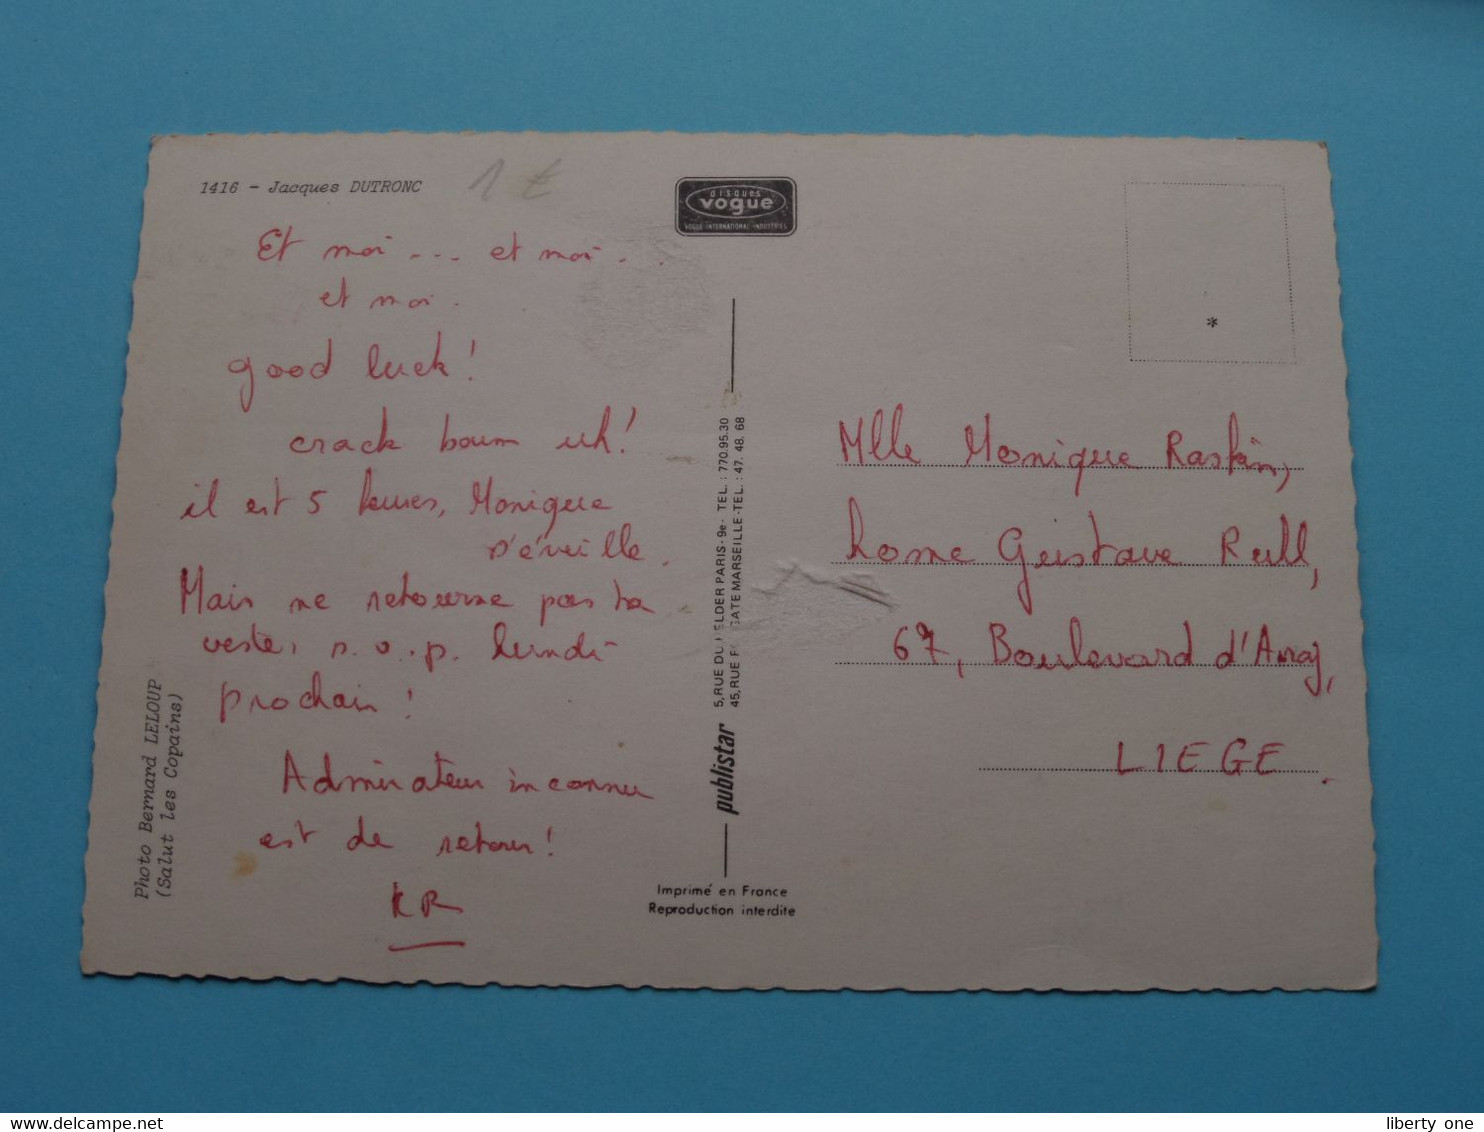 1416 - Jacques DUTRONC
1 €
disques
vogue
VOGUE INTERNATIONAL INDUSTRIES
Et moi ... et moi ..
et moi .
good luck !
crack boum uh !
il est 5 heures, Monique
s'éveille .
Mais ne retourne pas ta
veste, s.v.p. lundi
prochain !
Admirateur inconnu
est de retour !
KR
Photo Bernard LELOUP
(Salut les Copains)
publistar
5, RUE DU HELDER PARIS-9e- TEL.: 770.95.30
45, RUE GATE MARSEILLE-TEL.: 47. 48. 68
Imprimé en France
Reproduction interdite
*
Mlle Monique Raskin,
home Gustave Rull,
67, Boulevard d'Avroy,
LIEGE .
liberty one